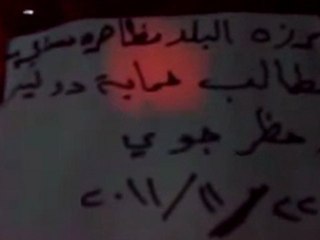 برزه البلد مظاهره مسائية
تطالب حماية دولية
حظر جوي
٢٢/١١/٢٠١١